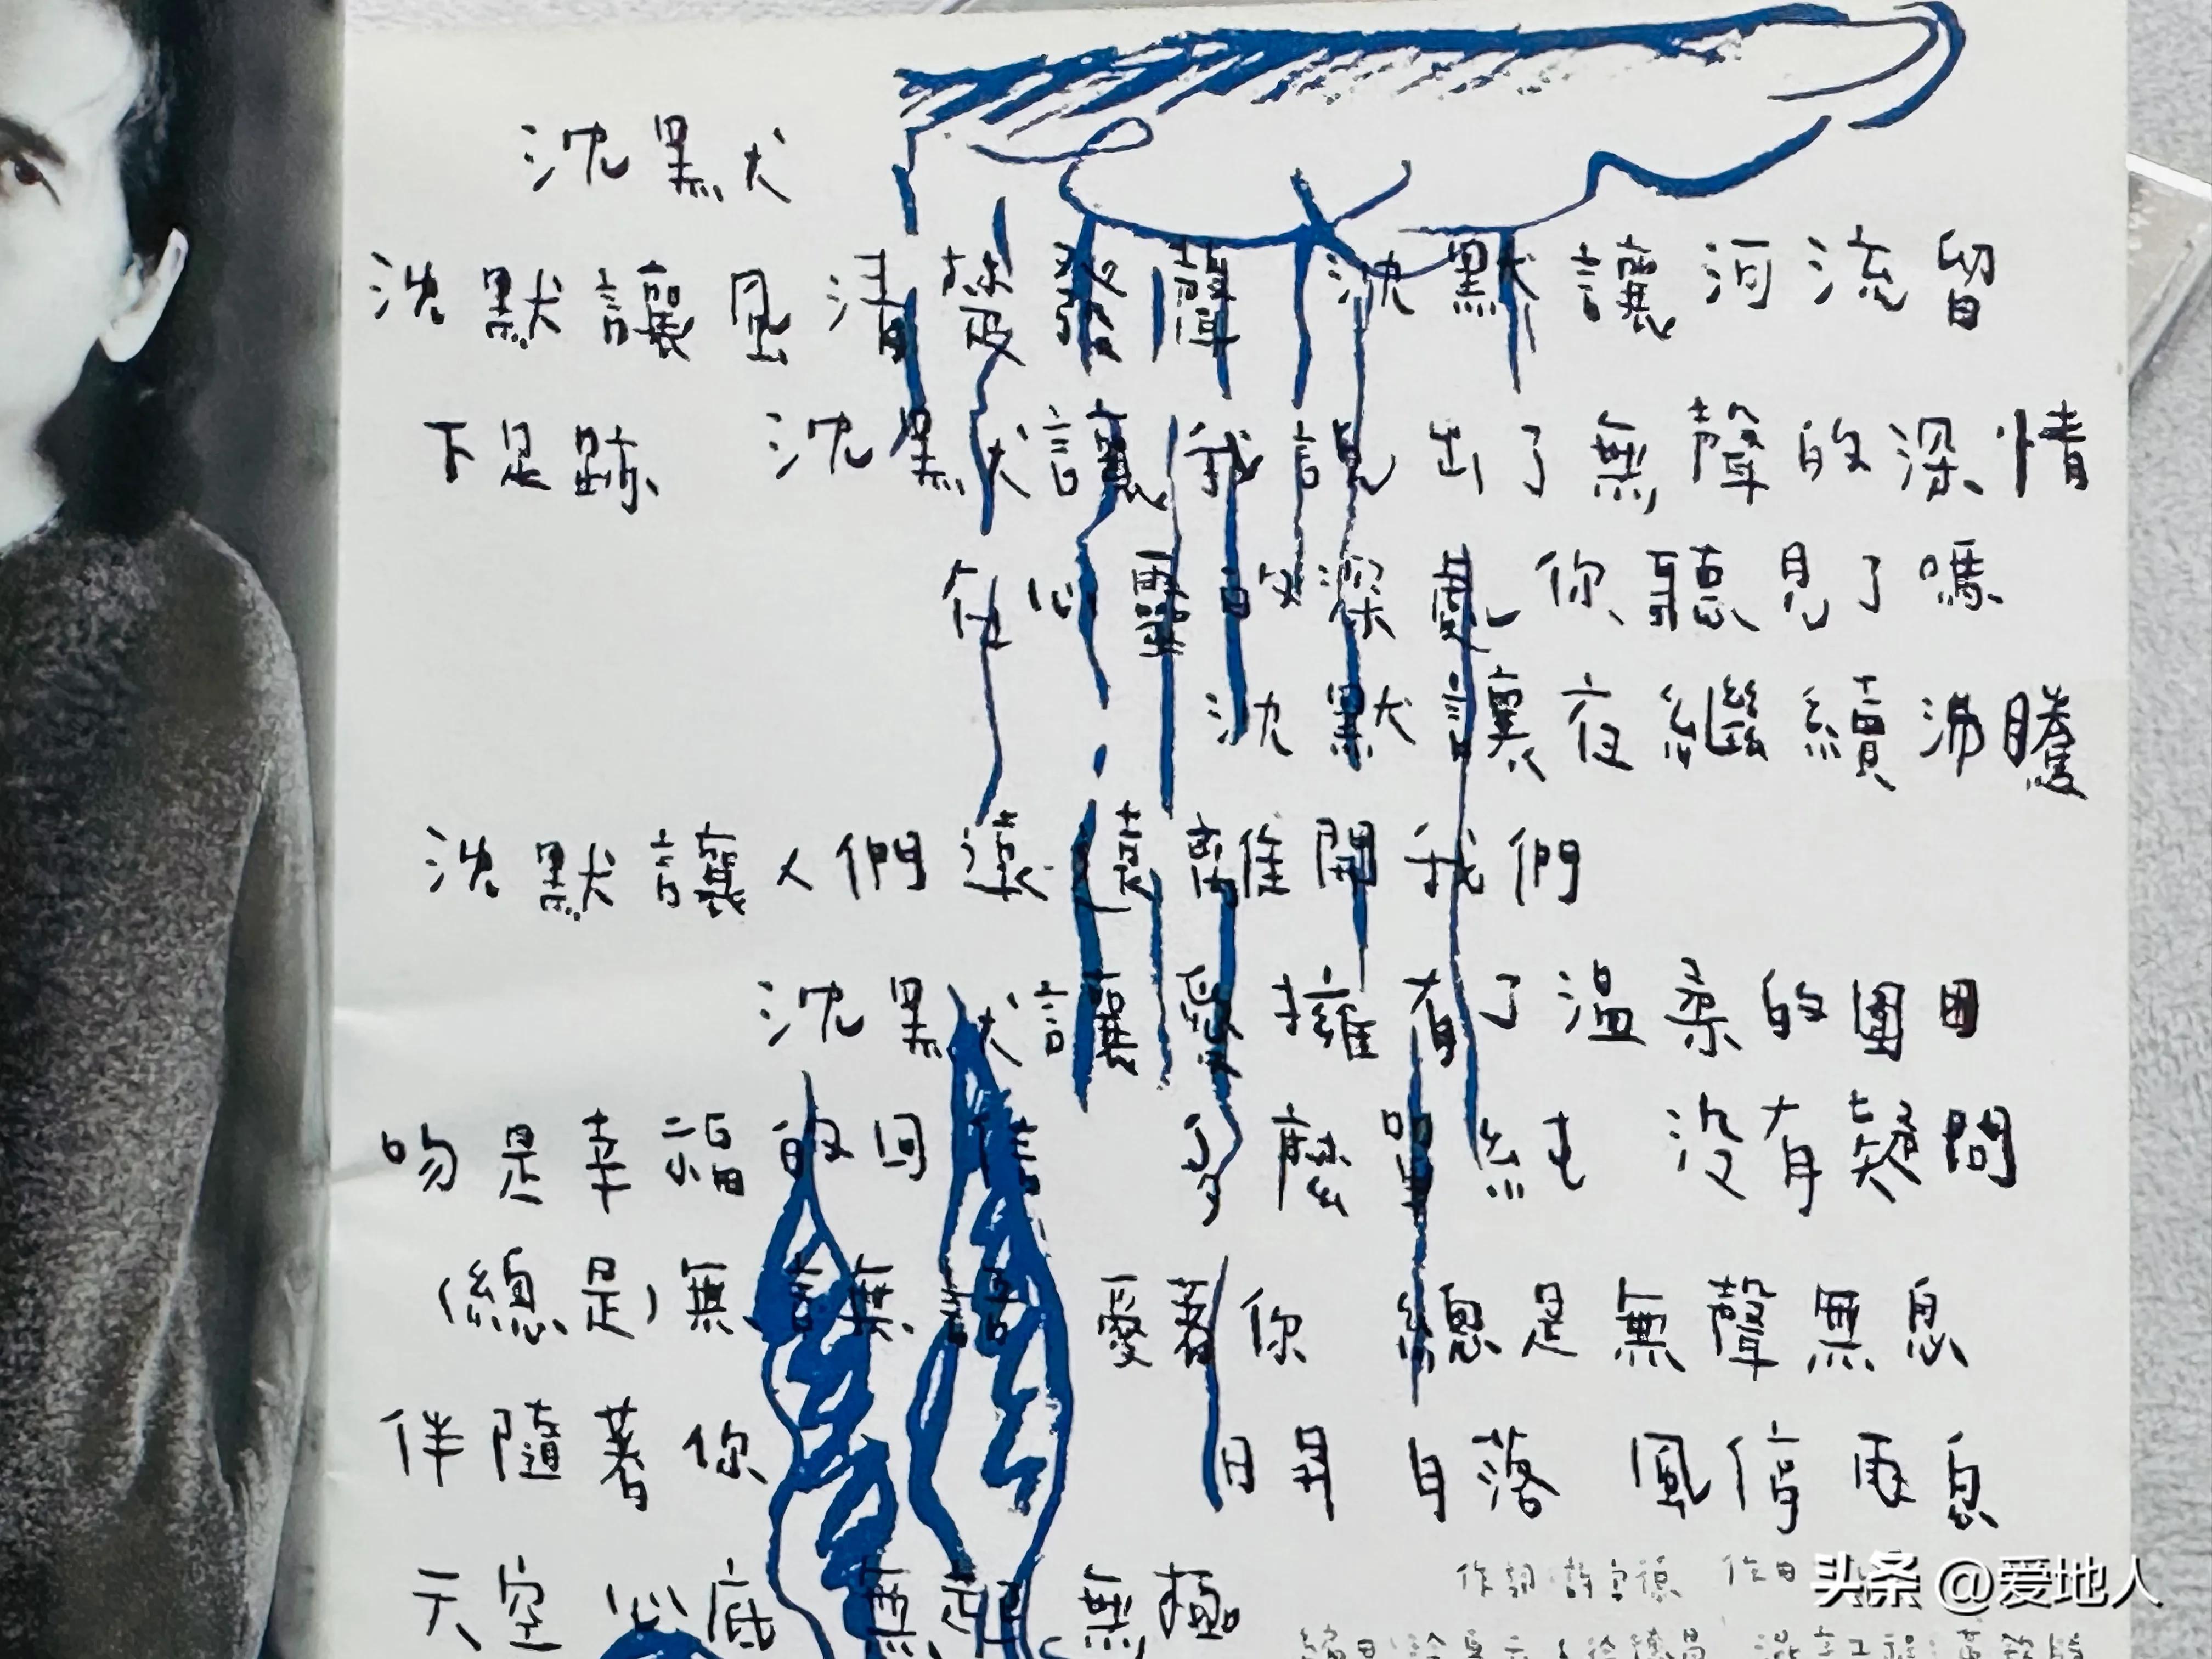 沈默
沈默讓風清楚發聲 沈默讓河流留
下足跡 沈默讓我說出了無聲的深情
從心靈的深處 你聽見了嗎
沈默讓夜繼續沸騰
沈默讓人們遠遠離開我們
沈默讓愛擁有了溫柔的
吻是幸福的回 麼單純 沒有疑問
(總是)無言無語 愛著你 總是無聲無息
伴隨著你 日昇 月落 風停 雨息
天空 心底 無邊 無極
作詞 許宇德 作曲
头条 @爱地人